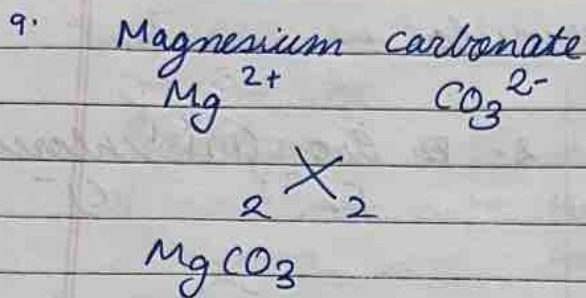 9. Magnesium carbonate
Mg²⁺ CO₃²⁻
2 X 2
MgCO₃